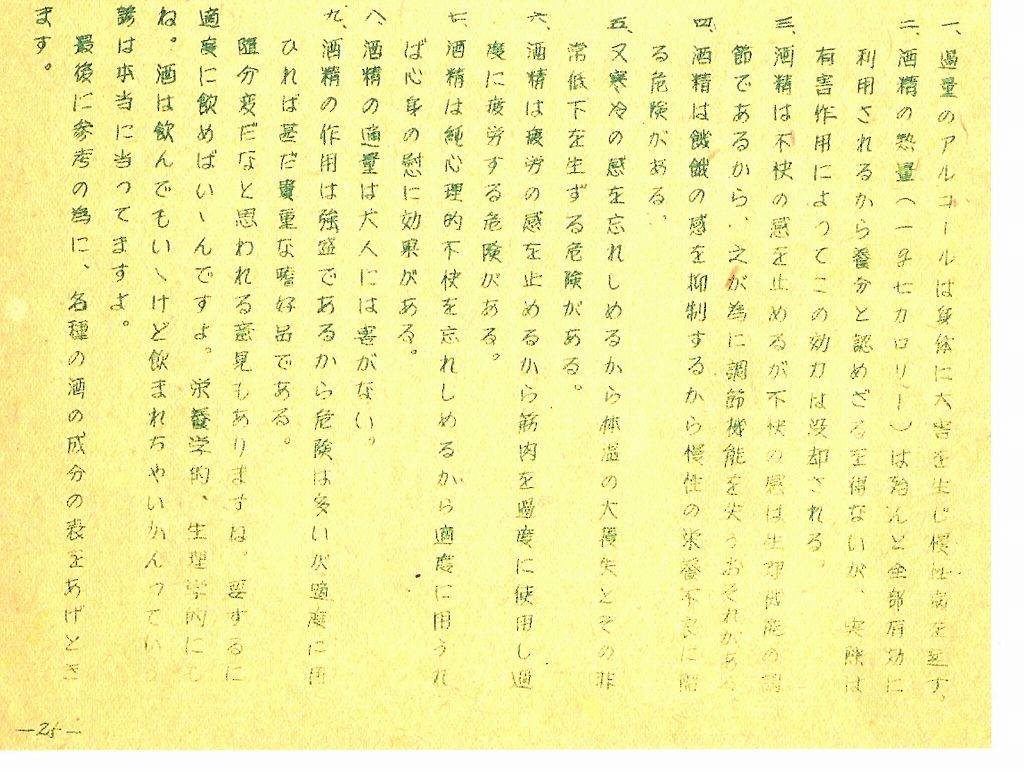 一、過量のアルコールは身体に大害を生じ慢性病を起す、
二、酒精の熱量(一g七カロリー)は殆んと全部有効に
利用されるから養分と認めざるを得ないが、実際は
有害作用によってこの効力は没却される、
三、酒精は不快の感を止めるが不快の感は生理機能の調
節であるから、之が為に調節機能を失うおそれがある、
四、酒精は饑餓の感を抑制するから慢性の栄養不良に陥
る危険がある、
五、又寒冷の感を忘れしめるから体温の大損失とその非
常低下を生ずる危険がある。
六、酒精は疲労の感を止めるから筋肉を過度に使用し過
度に疲労する危険がある。
七、酒精は純心理的不快を忘れしめるから適度に用うれ
ば心身の慰に効果がある。
八、酒精の適量は大人には害がない。
九、酒精の作用は強盛であるから危険は多いが適度に用
ひれば甚だ貴重な嗜好品である。
随分変だなと思われる意見もありますね。要するに
適度に飲めばいゝんですよ。栄養学的、生理学的にも
ね。酒は飲んでもいゝけど飲まれちゃいかんってい
諺は本当に当ってますよ。
最後に参考の為に、各種の酒の成分の表をあげとき
ます。
—25—